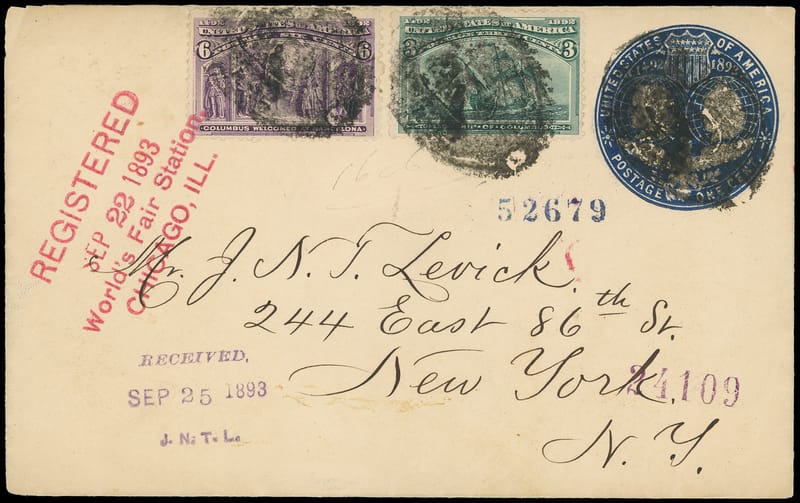 1492 1892
UNITED STATES OF AMERICA
6 6
COLUMBUS WELCOMED AT BARCELONA
1492 1892
UNITED STATES OF AMERICA
3 3
OF COLUMBUS
UNITED STATES OF AMERICA
1492 1892
POSTAGE ONE CENT
REGISTERED
SEP 22 1893
World's Fair Station,
CHICAGO, ILL.
1606
52679
Mr. J. N. T. Levick
244 East 86th St.
New York.
N. Y.
34109
RECEIVED,
SEP 25 1893
J. N. T. L.